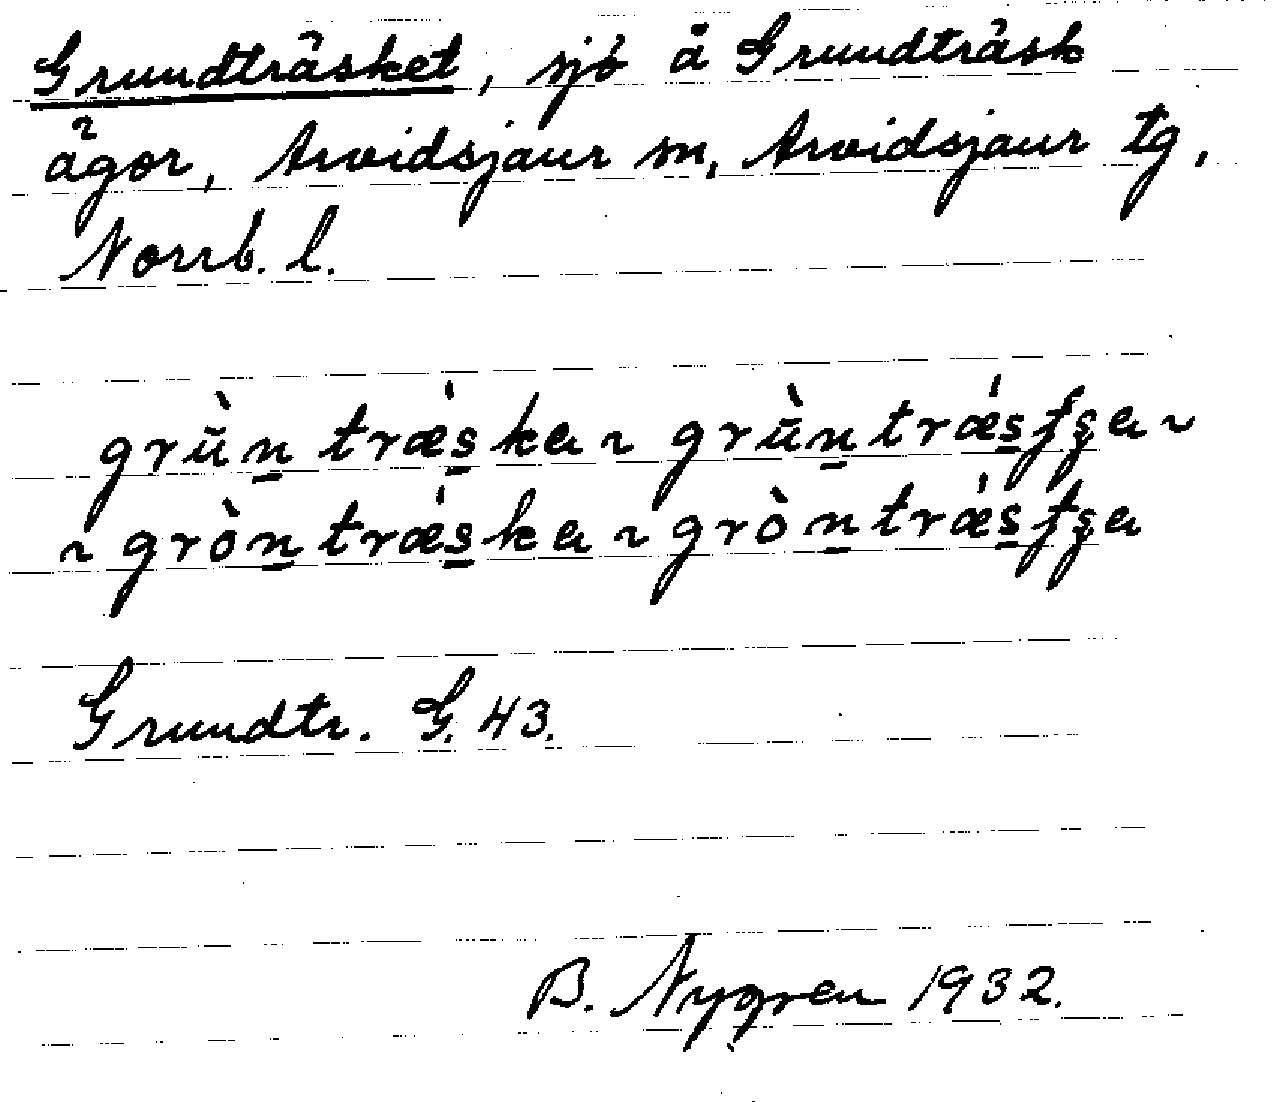 Grundträsket, sjö å Grundträsk
ägor, Arvidsjaur sn, Arvidsjaur tg,
Norrb. l.
grùn træ̀ska ~ grùn træ̀sʃʂa ~
~ gròn træ̀ska ~ gròn træ̀sʃʂa
Grundtr. G. 43.
B. Nygren 1932.